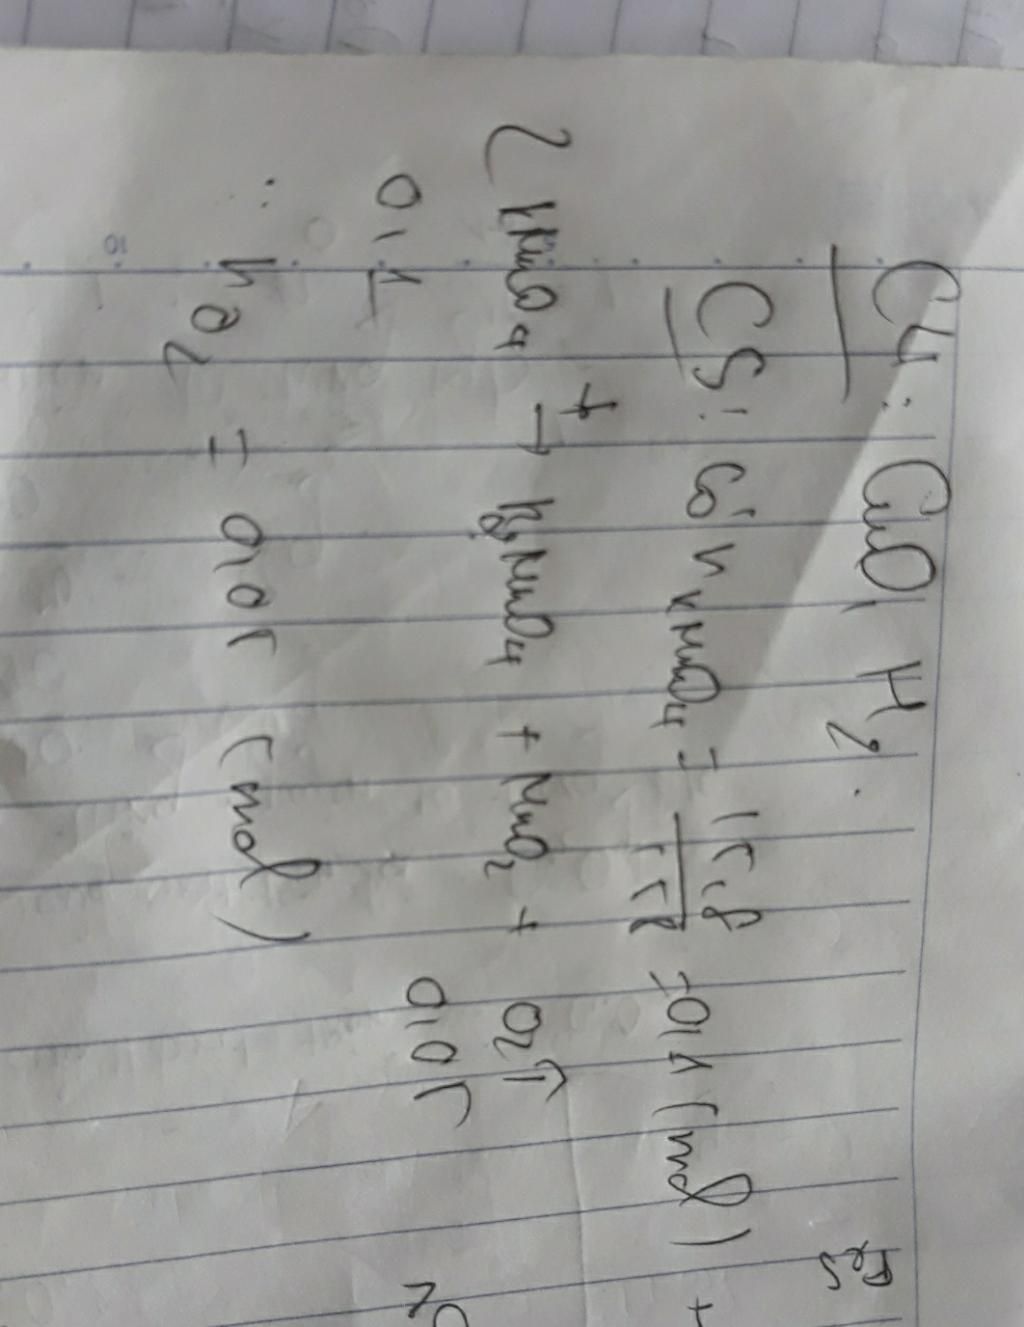 C4: CuO, H2.
C5: Có n KMnO4 = 15,8 / 158 = 0,1 (mol)
2KMnO4 t→ K2MnO4 + MnO2 + O2↑
0,1 0,05
: nO2 = 0,05 (mol)